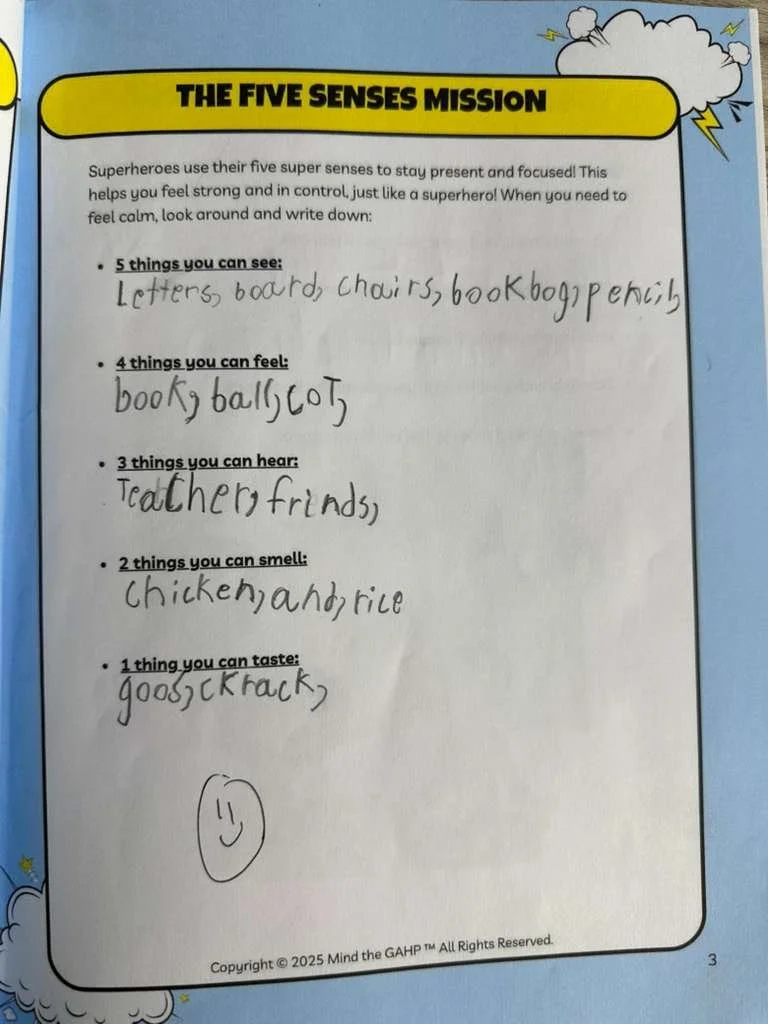 THE FIVE SENSES MISSION
Superheroes use their five super senses to stay present and focused! This
helps you feel strong and in control, just like a superhero! When you need to
feel calm, look around and write down:
• 5 things you can see:
Letters, board, chairs, bookbog, pencils
• 4 things you can feel:
book, ball, coT,
• 3 things you can hear:
Teacher, frinds,
• 2 things you can smell:
chicken, and, rice
• 1 thing you can taste:
goos, ckrack,
Copyright © 2025 Mind the GAHP ™ All Rights Reserved.
3